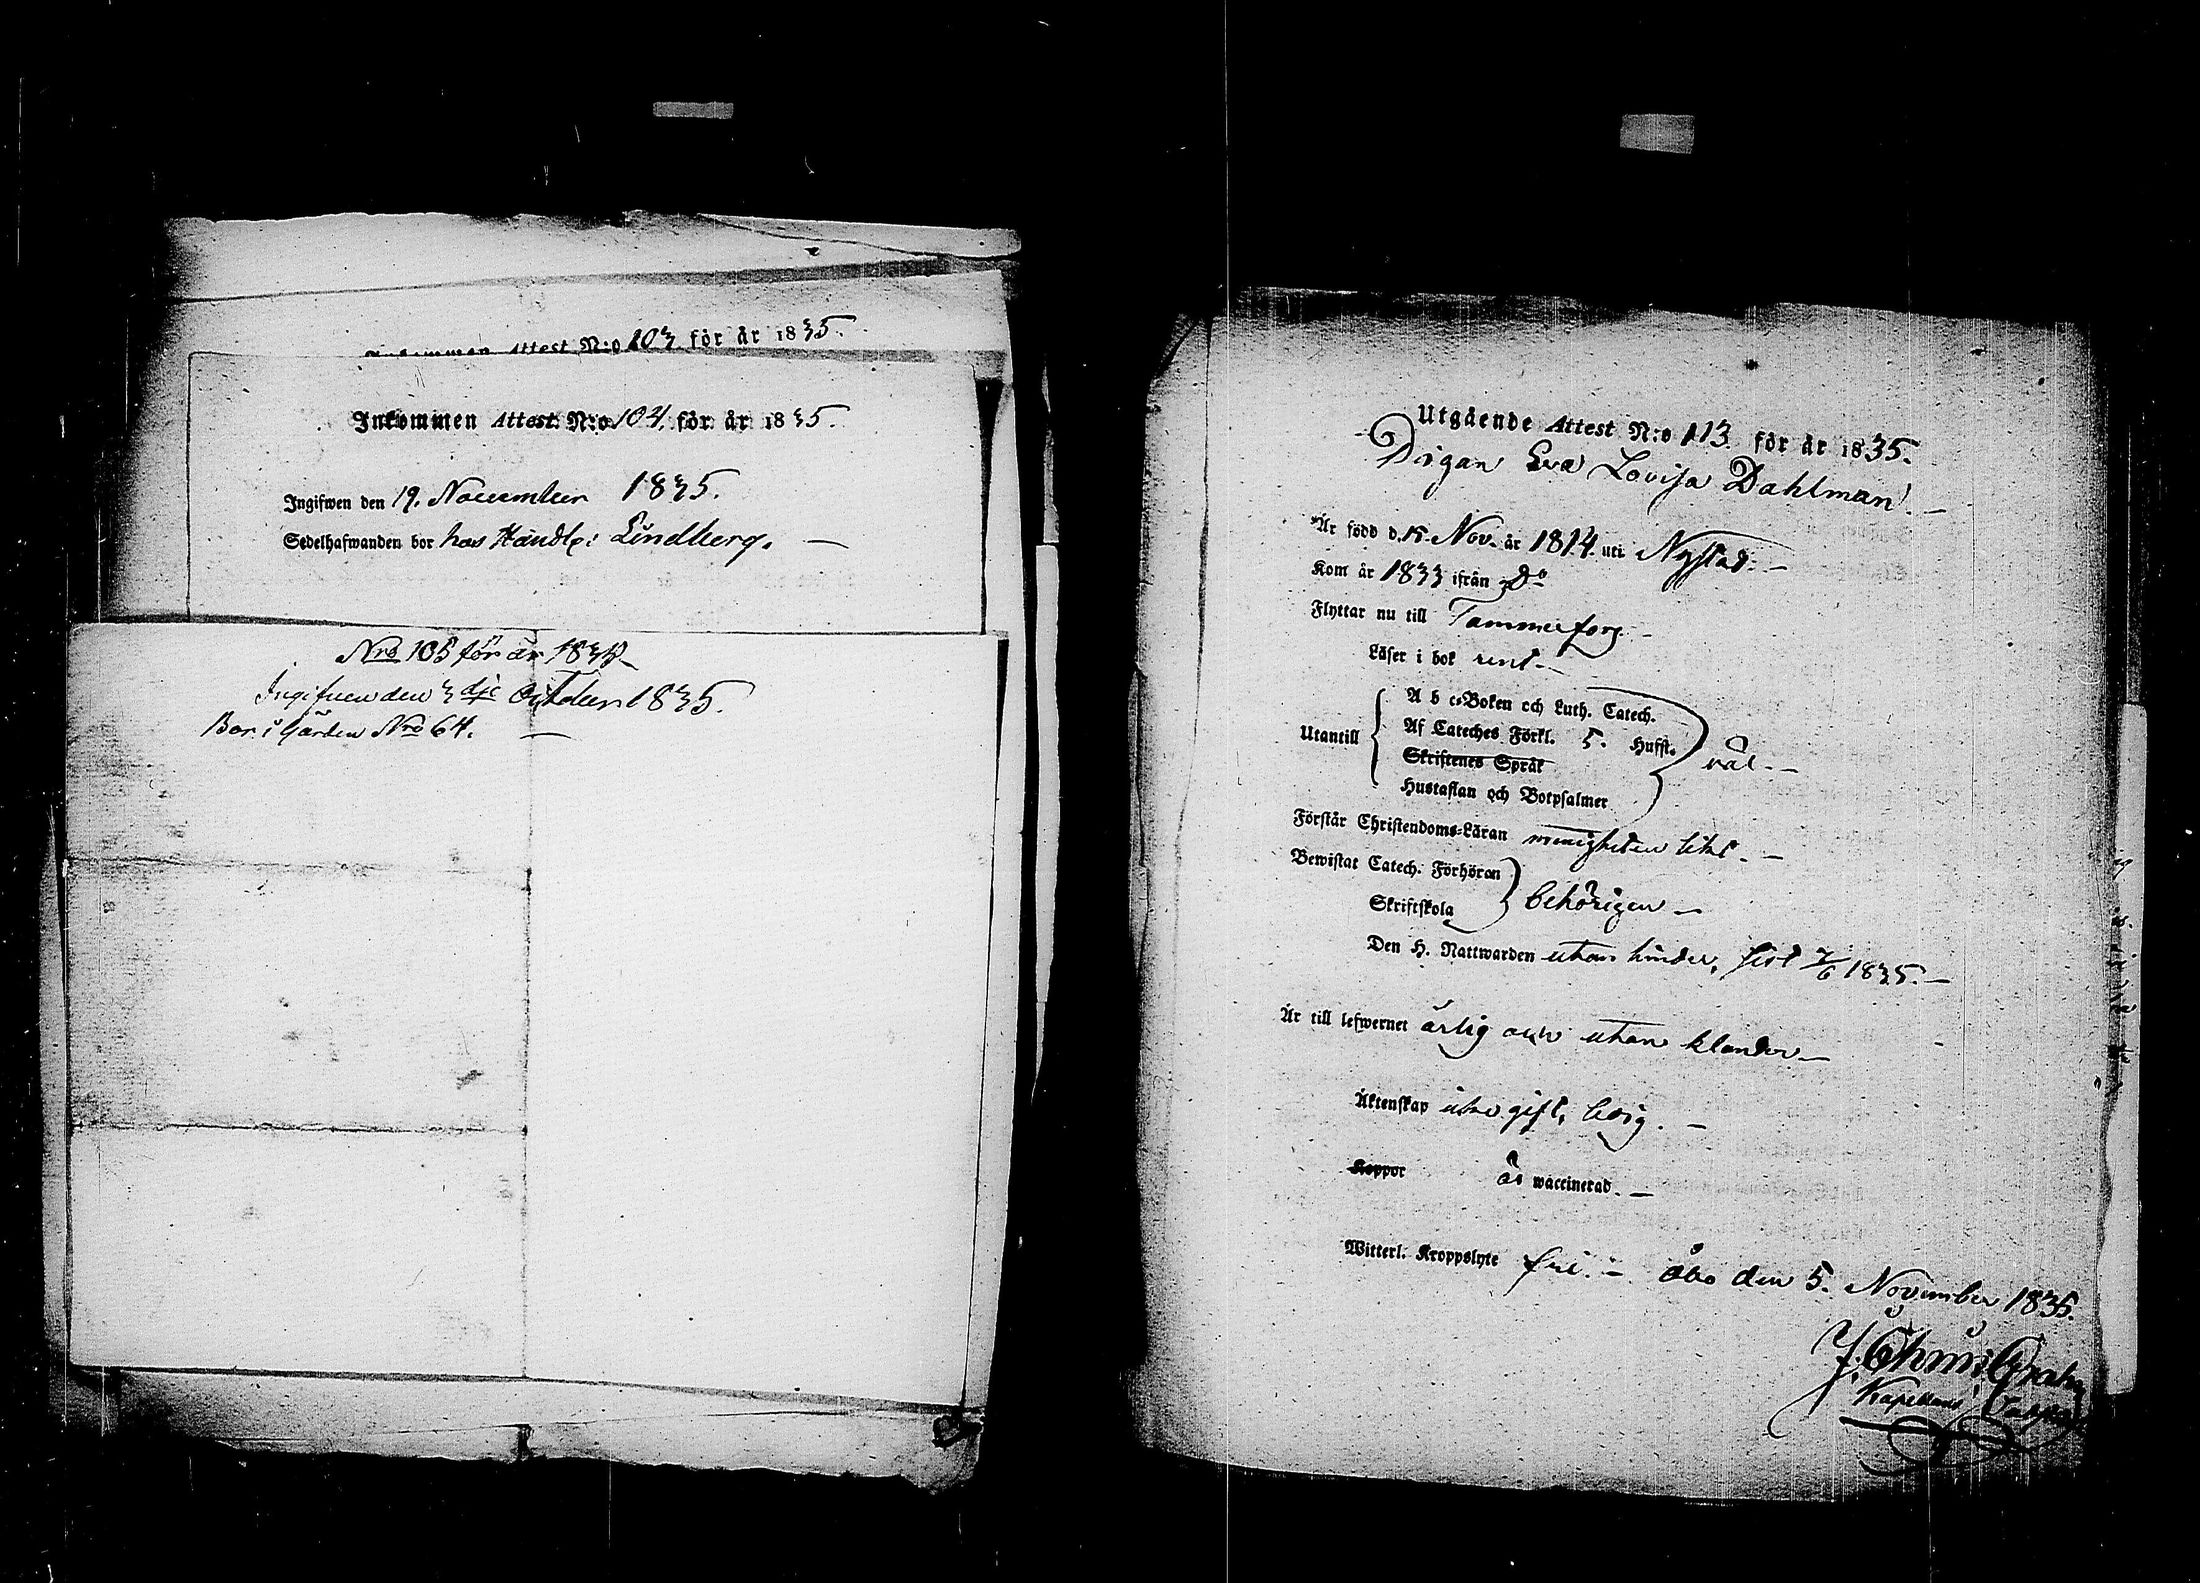 Inkommen Attest N:o 103. för år 1835.
Inkommen Attest N:o 104. för år 1835.
Ingifwen den 19. November 1835.
Sedelhafwanden bor hos Handl: Lindberg. —
Nro 105 för år 1835
Ingifven den 3dje October 1835.
Bor i Gården Nro 64. —
Utgående Attest N:o 113. för år 1835.
Pigan Eva Lovisa Dahlman. —
Är född d. 15. Nov. år 1814. uti Nystad. —
Kom år 1833 ifrån Do
Flyttar nu till Tammerfors. —
Läser i bok rent. —
A b c-Boken och Luth. Catech.
Af Cateches Förkl. 5. Hufst.
Utantill väl. —
Skriftenes Språk
Hustaflan och Botpsalmer
Förstår Christendoms-Läran menigheten likt. —
Bewistat Catech. Förhören
behörigen —
Skriftskola
Den H. Nattwarden utan hinder, sist 7/6 1835. —
Är till lefwernet ärlig och utan klander —
Äktenskap icke gift, ledig. —
Koppor är waccinerad. —
Witterl. Kroppslyte fri. — Åbo den 5. November 1835.
Kapellans